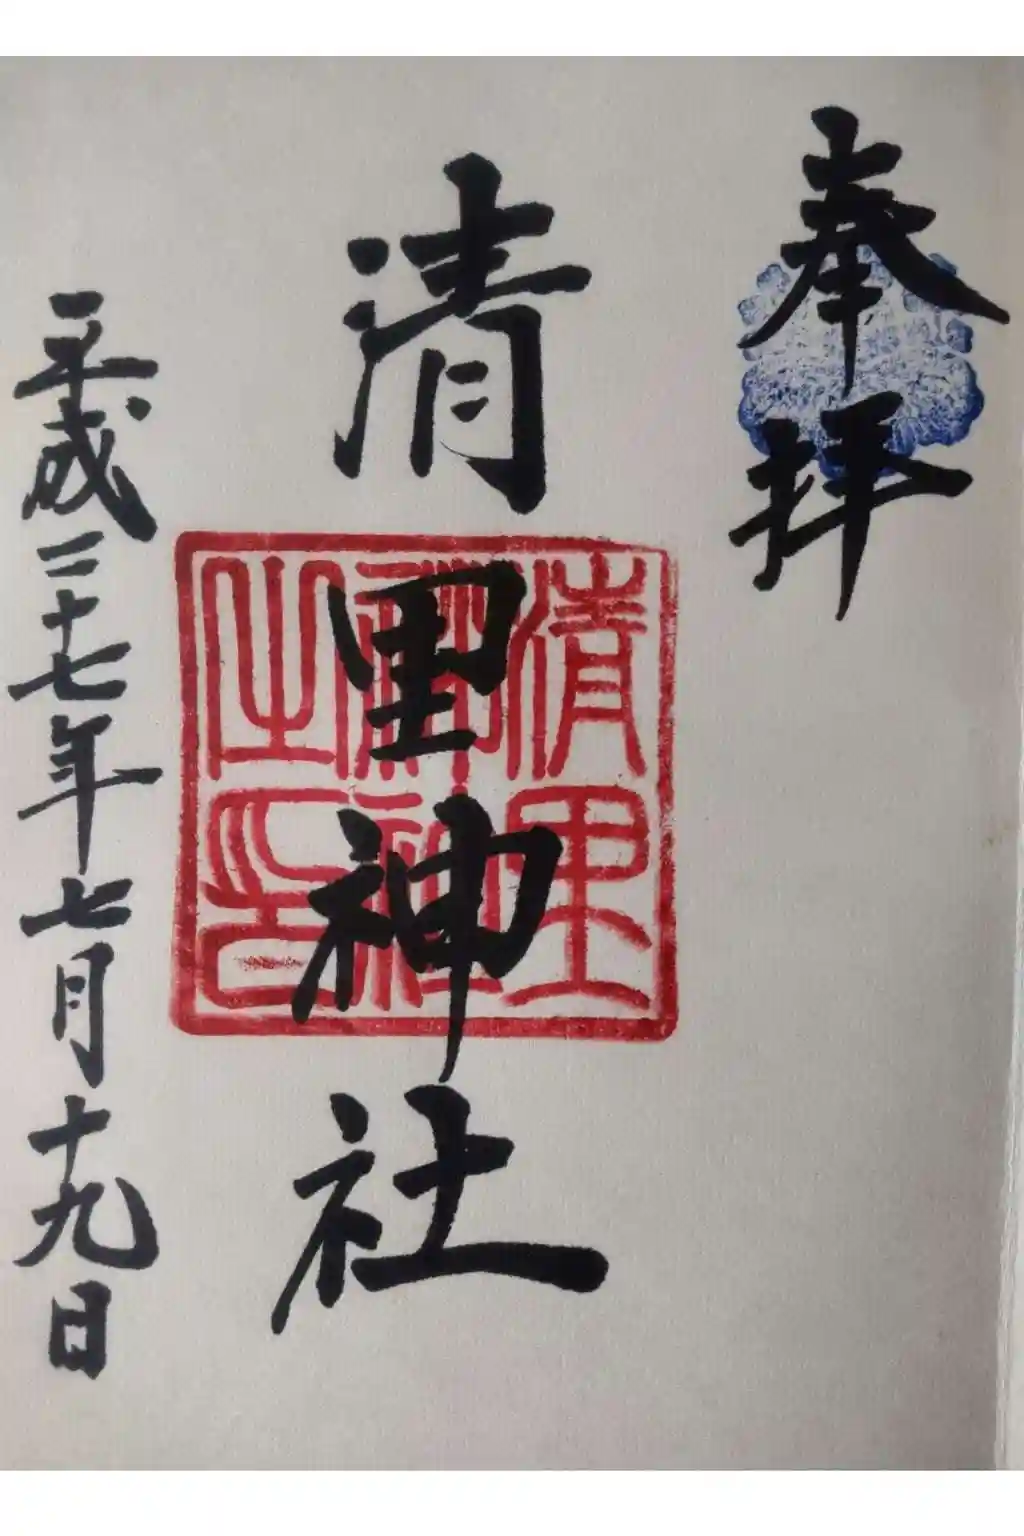 奉拝
清里神社
清里
神社
之印
平成二十七年七月十九日